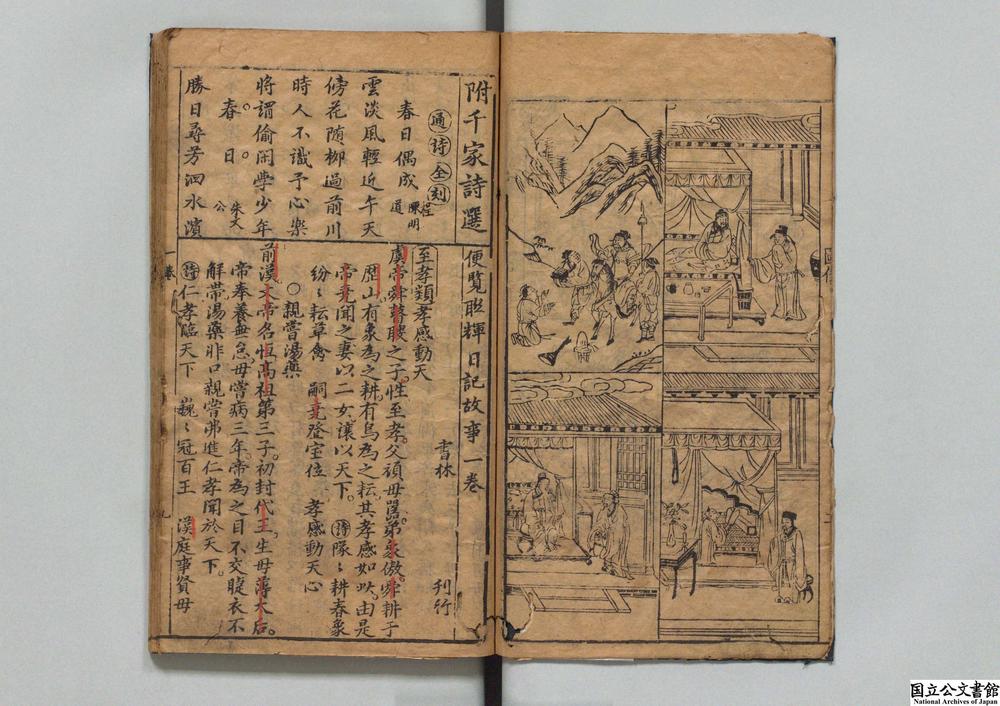 附千家詩選
通詩全刻
春日偶成 程明道
雲淡風輕近午天
傍花随柳過前川
時人不識予心樂
將謂偷闲學少年
春日 朱文公
勝日尋芳泗水濱
便覽聯輝日記故事一卷
書林 刊行
至孝類孝感動天
虞帝舜瞽瞍之子性至孝父頑母嚚弟象傲舜耕于
歷山有象為之耕有鳥為之耘其孝感如此由是
帝堯聞之妻以二女讓以天下 詩隊〻耕春象
紛〻耘草禽 嗣堯登宝位 孝感動天心
○親嘗湯藥
前漢文帝名恒高祖第三子初封代王生母薄太后
帝奉養無怠母嘗病三年帝為之目不交睫衣不
解帶湯藥非口親嘗弗進仁孝聞於天下
詩仁孝臨天下 巍〻冠百王 漢庭事賢母
卷
国立公文書館
National Archives of Japan